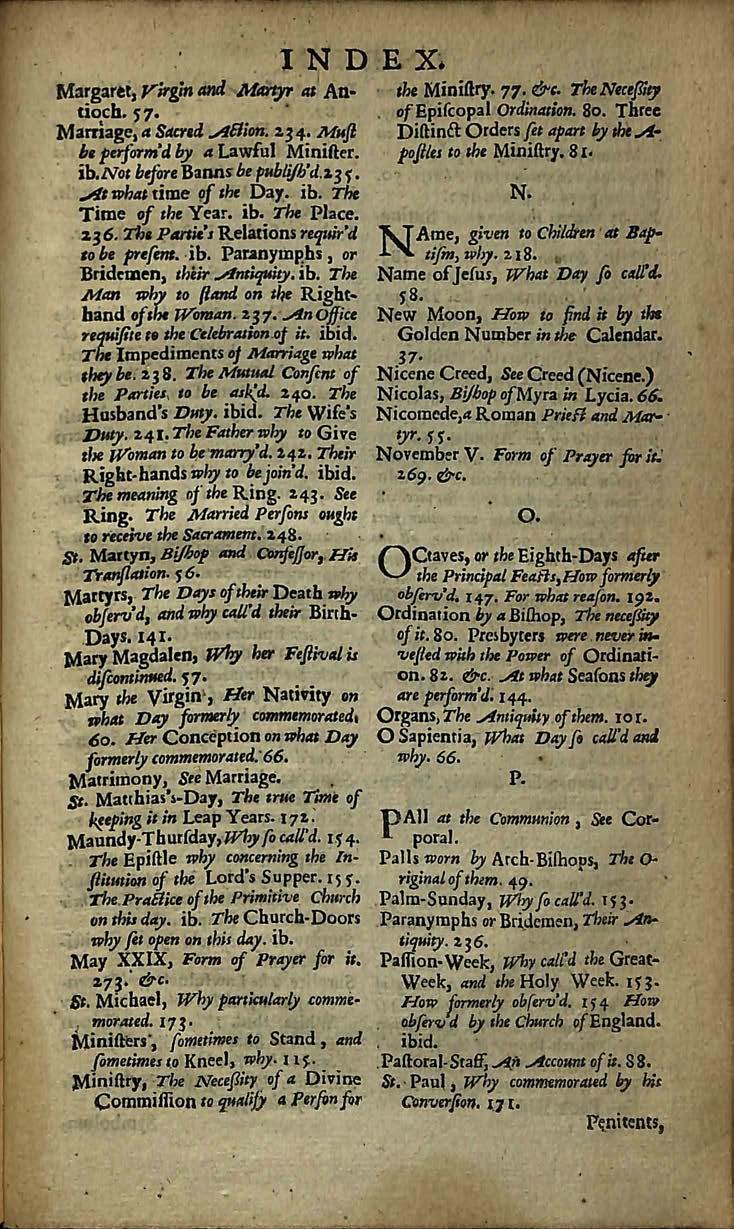 INDEX.
Margaret, Virgin and Martyr at An-
tioch. 57.
Marriage, a Sacred Action. 234. Muſt
be perform'd by a Lawful Miniſter.
ib. Not before Banns be publiſh'd. 235.
At what time of the Day. ib. The
Time of the Year. ib. The Place.
236. The Partie's Relations requir'd
to be preſent. ib. Paranymphs, or
Bridemen, their Antiquity. ib. The
Man why to ſtand on the Right-
hand of the Woman. 237. An Office
requiſite to the Celebration of it. ibid.
The Impediments of Marriage what
they be. 238. The Mutual Conſent of
the Parties to be ask'd. 240. The
Husband's Duty. ibid. The Wife's
Duty. 241. The Father why to Give
the Woman to be marry'd. 242. Their
Right-hands why to be join'd. ibid.
The meaning of the Ring. 243. See
Ring. The Married Perſons ought
to receive the Sacrament. 248.
St. Martyn, Biſhop and Confeſſor, His
Tranſlation. 56.
Martyrs, The Days of their Death why
obſerv'd, and why call'd their Birth-
Days. 141.
Mary Magdalen, Why her Feſtival is
diſcontinued. 57.
Mary the Virgin, Her Nativity on
what Day formerly commemorated.
60. Her Conception on what Day
formerly commemorated. 66.
Matrimony, See Marriage.
St. Matthias's-Day, The true Time of
keeping it in Leap Years. 172.
Maundy-Thurſday, Why ſo call'd. 154.
The Epiſtle why concerning the In-
ſtitution of the Lord's Supper. 155.
The Practice of the Primitive Church
on this day. ib. The Church-Doors
why ſet open on this day. ib.
May XXIX, Form of Prayer for it.
273. &c.
St. Michael, Why particularly comme-
morated. 173.
Miniſters, ſometimes to Stand, and
ſometimes to Kneel, why. 115.
Miniſtry, The Neceſſity of a Divine
Commiſſion to qualify a Perſon for
the Miniſtry. 77. &c. The Neceſſity
of Epiſcopal Ordination. 80. Three
Diſtinct Orders ſet apart by the A-
poſtles to the Miniſtry. 81.
N.
NAme, given to Children at Bap-
tiſm, why. 218.
Name of Jeſus, What Day ſo call'd.
58.
New Moon, How to find it by the
Golden Number in the Calendar.
37.
Nicene Creed, See Creed (Nicene.)
Nicolas, Biſhop of Myra in Lycia. 66.
Nicomede, a Roman Prieſt and Mar-
tyr. 55.
November V. Form of Prayer for it.
269. &c.
O.
OCtaves, or the Eighth-Days after
the Principal Feaſts, How formerly
obſerv'd. 147. For what reaſon. 192.
Ordination by a Biſhop, The neceſſity
of it. 80. Presbyters were never in-
veſted with the Power of Ordinati-
on. 82. &c. At what Seaſons they
are perform'd. 144.
Organs, The Antiquity of them. 101.
O Sapientia, What Day ſo call'd and
why. 66.
P.
PAll at the Communion, See Cor-
poral.
Palls worn by Arch-Biſhops, The O-
riginal of them. 49.
Palm-Sunday, Why ſo call'd. 153.
Paranymphs or Bridemen, Their An-
tiquity. 236.
Paſſion-Week, Why call'd the Great-
Week, and the Holy Week. 153.
How formerly obſerv'd. 154 How
obſerv'd by the Church of England.
ibid.
Paſtoral-Staff, An Account of it. 88.
St. Paul, Why commemorated by his
Converſion. 171.
Penitents,